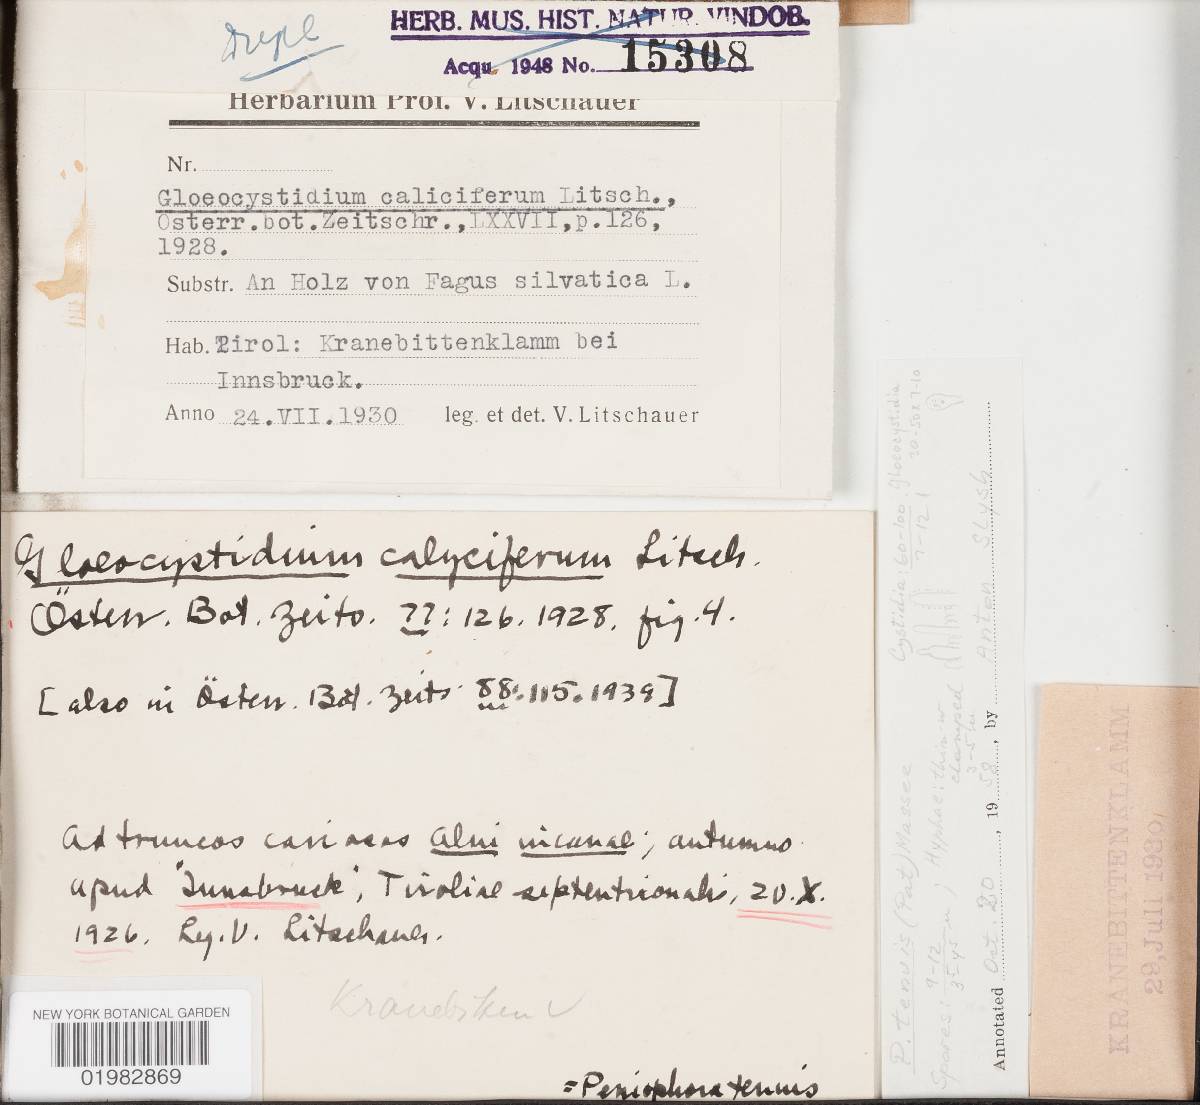 Dupl
HERB. MUS. HIST. NATUR. VINDOB.
Acqu. 1948 No. 15308
Herbarium Prof. V. Litschauer
Nr.
Gloeocystidium caliciferum Litsch.,
Österr.bot.Zeitschr.,LXXVII,p.126,
1928.
Substr. An Holz von Fagus silvatica L.
Hab. Tirol: Kranebittenklamm bei
Innsbruck.
Anno 24.VII.1930 leg. et det. V. Litschauer
Gloeocystidium calyciferum Litsch.
Österr. Bot. Zeits. 77: 126. 1928. fig. 4.
[also in Österr. Bot. Zeits. 88: 115. 1939]
Ad truncos cariosos Alni incanae; autumno
apud "Innsbruck", Tiroliae septentrionalis, 20.X.
1926. Leg. V. Litschauer.
= Peniophora tenuis
NEW YORK BOTANICAL GARDEN
01982869
P. tenuis (Pat) Massee Cystidia: 60-100 gloeocystidia
7-12 20-50 x 7-10
Spores: 9-12 μ ; Hyphae: thin-w
3-4.5 clamped
3-5 μ
Annotated Oct. 20, 1958, by Anton Slysh
KRANEBITTENKLAMM
29,Juli 1930,